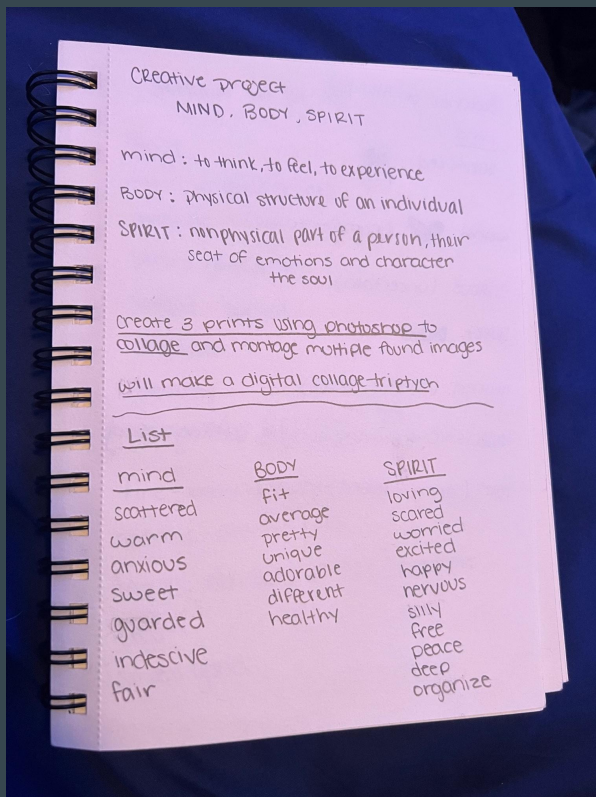 Creative project
MIND, BODY, SPIRIT
mind: to think, to feel, to experience
BODY: physical structure of an individual
SPIRIT: nonphysical part of a person, their
seat of emotions and character
the soul
create 3 prints using photoshop to
collage and montage multiple found images
will make a digital collage-triptych
List
mind
scattered
warm
anxious
sweet
guarded
indescive
fair
BODY
fit
average
pretty
unique
adorable
different
healthy
SPIRIT
loving
scared
worried
excited
happy
nervous
silly
free
peace
deep
organize